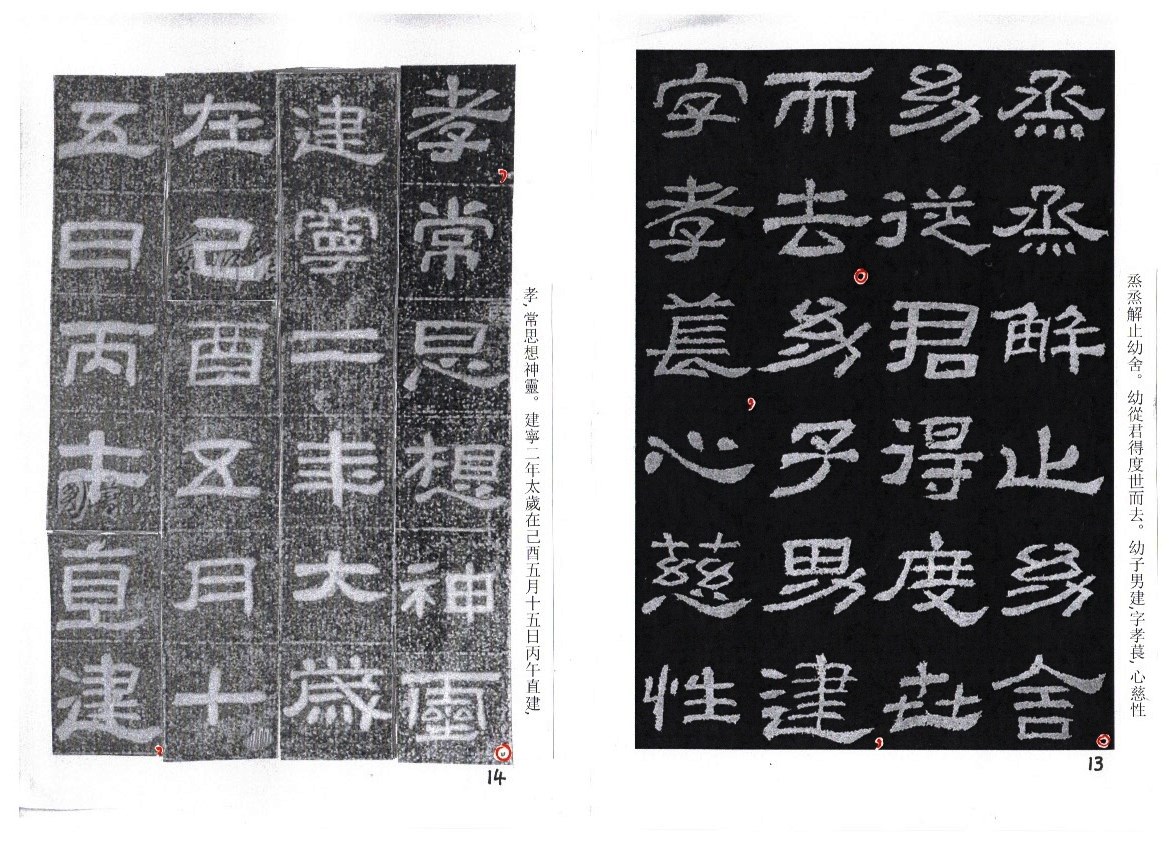 烝烝解止幼舍
幼從君得度世
而去幼子男建
字孝萇心慈性
烝烝解止幼舍。幼從君得度世而去。幼子男建,字孝萇,心慈性
13
孝常思想神靈
建寧二年大歲
在己酉五月十
五日丙午直建
孝,常思想神靈。建寧二年太歲在己酉五月十五日丙午直建,
14